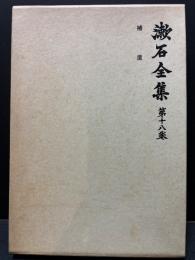 漱石全集
第十八巻
補遺